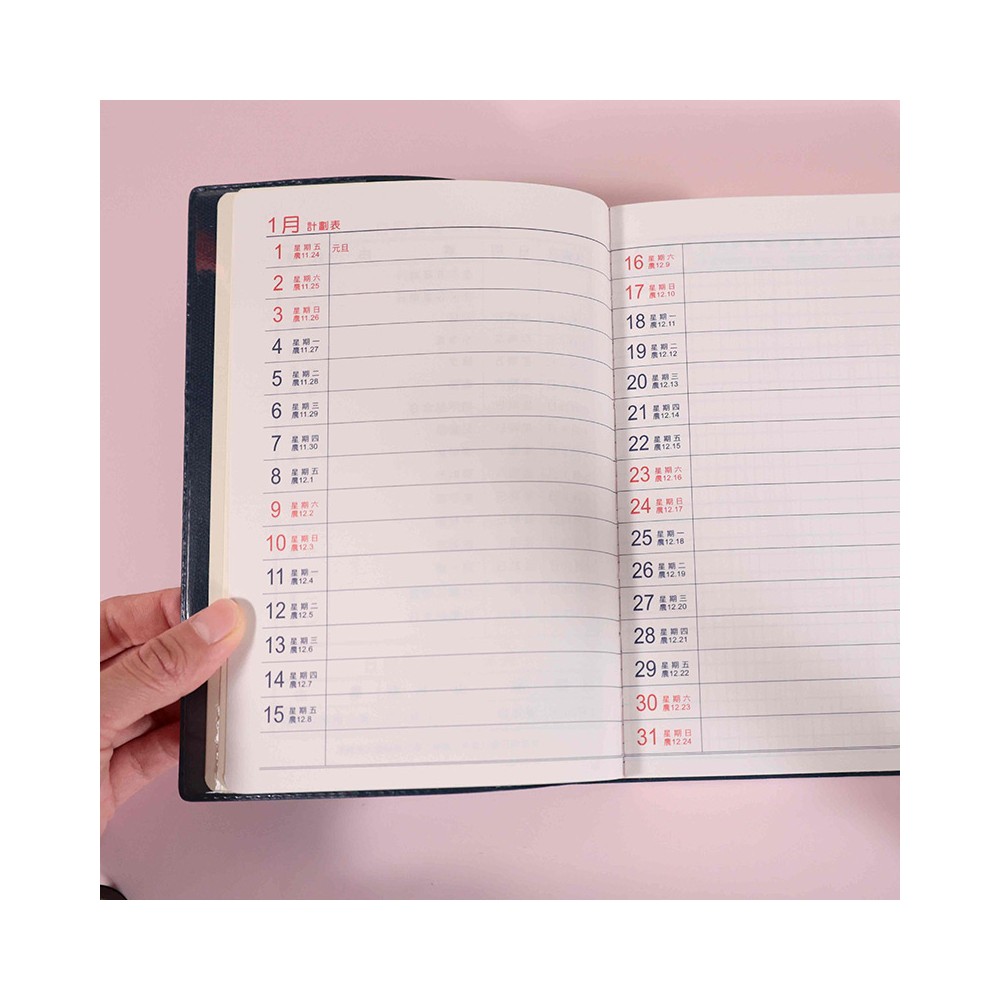 1月 計劃表
1 星期五 農11.24 元旦
2 星期六 農11.25
3 星期日 農11.26
4 星期一 農11.27
5 星期二 農11.28
6 星期三 農11.29
7 星期四 農11.30
8 星期五 農12.1
9 星期六 農12.2
10 星期日 農12.3
11 星期一 農12.4
12 星期二 農12.5
13 星期三 農12.6
14 星期四 農12.7
15 星期五 農12.8
16 星期六 農12.9
17 星期日 農12.10
18 星期一 農12.11
19 星期二 農12.12
20 星期三 農12.13
21 星期四 農12.14
22 星期五 農12.15
23 星期六 農12.16
24 星期日 農12.17
25 星期一 農12.18
26 星期二 農12.19
27 星期三 農12.20
28 星期四 農12.21
29 星期五 農12.22
30 星期六 農12.23
31 星期日 農12.24